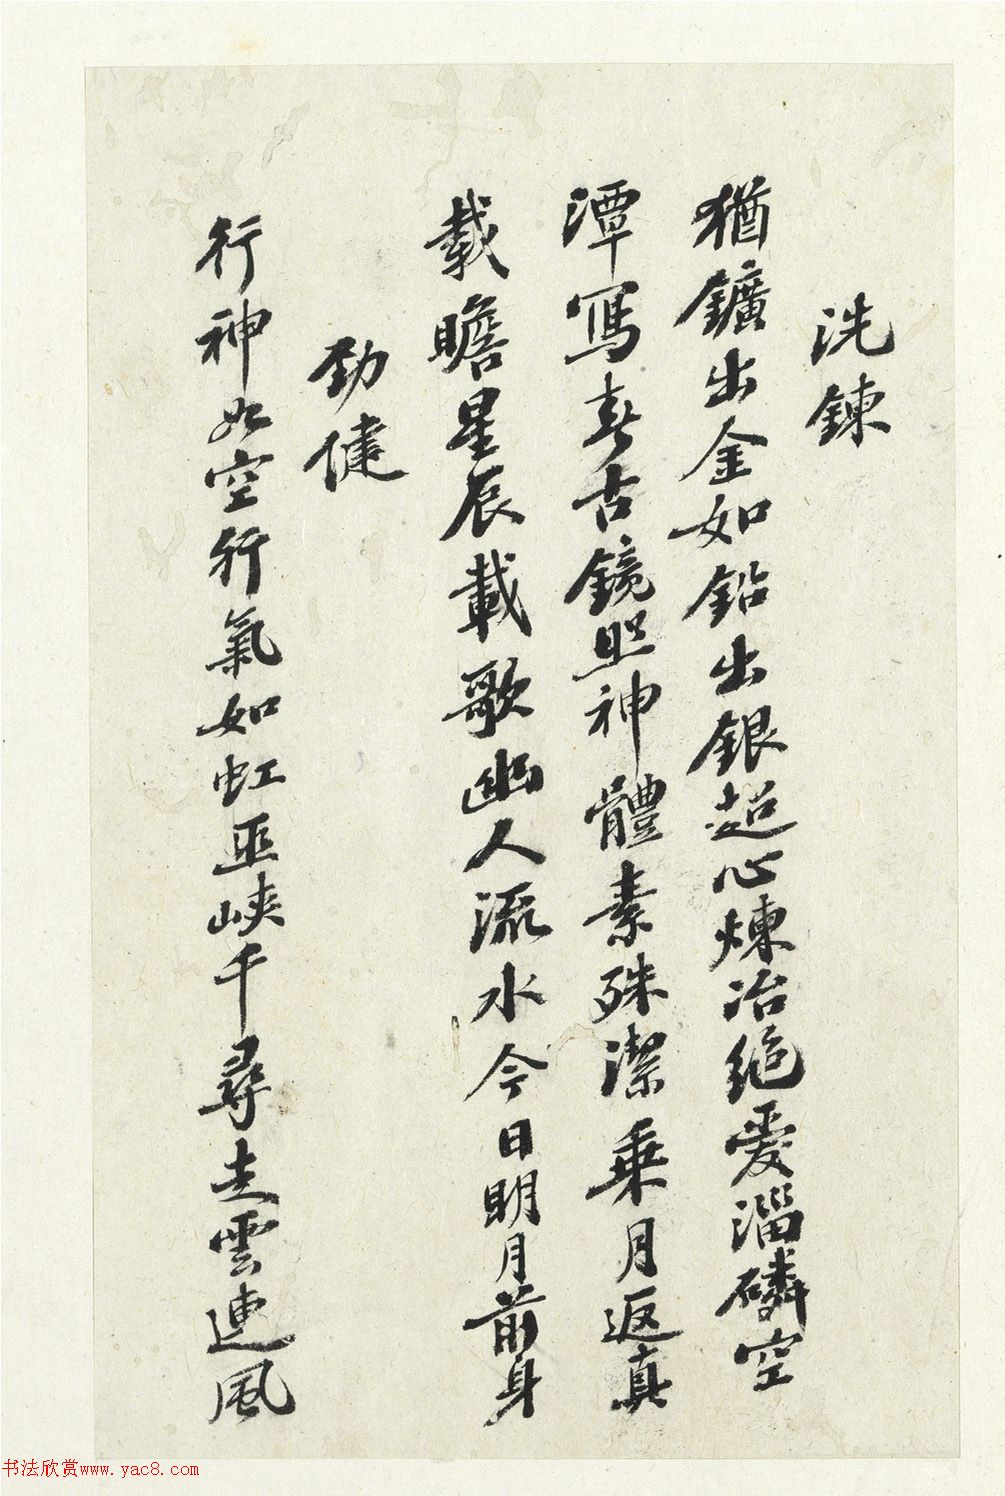 洗鍊
猶鑛出金如鉛出銀超心煉冶絕愛淄磷空
潭寫春古鏡照神體素殊潔乗月返真
载瞻星辰載歌幽人流水今日明月前身
勁健
行神如空行氣如虹巫峽千尋走雲連風
书法欣赏www.yac8.com